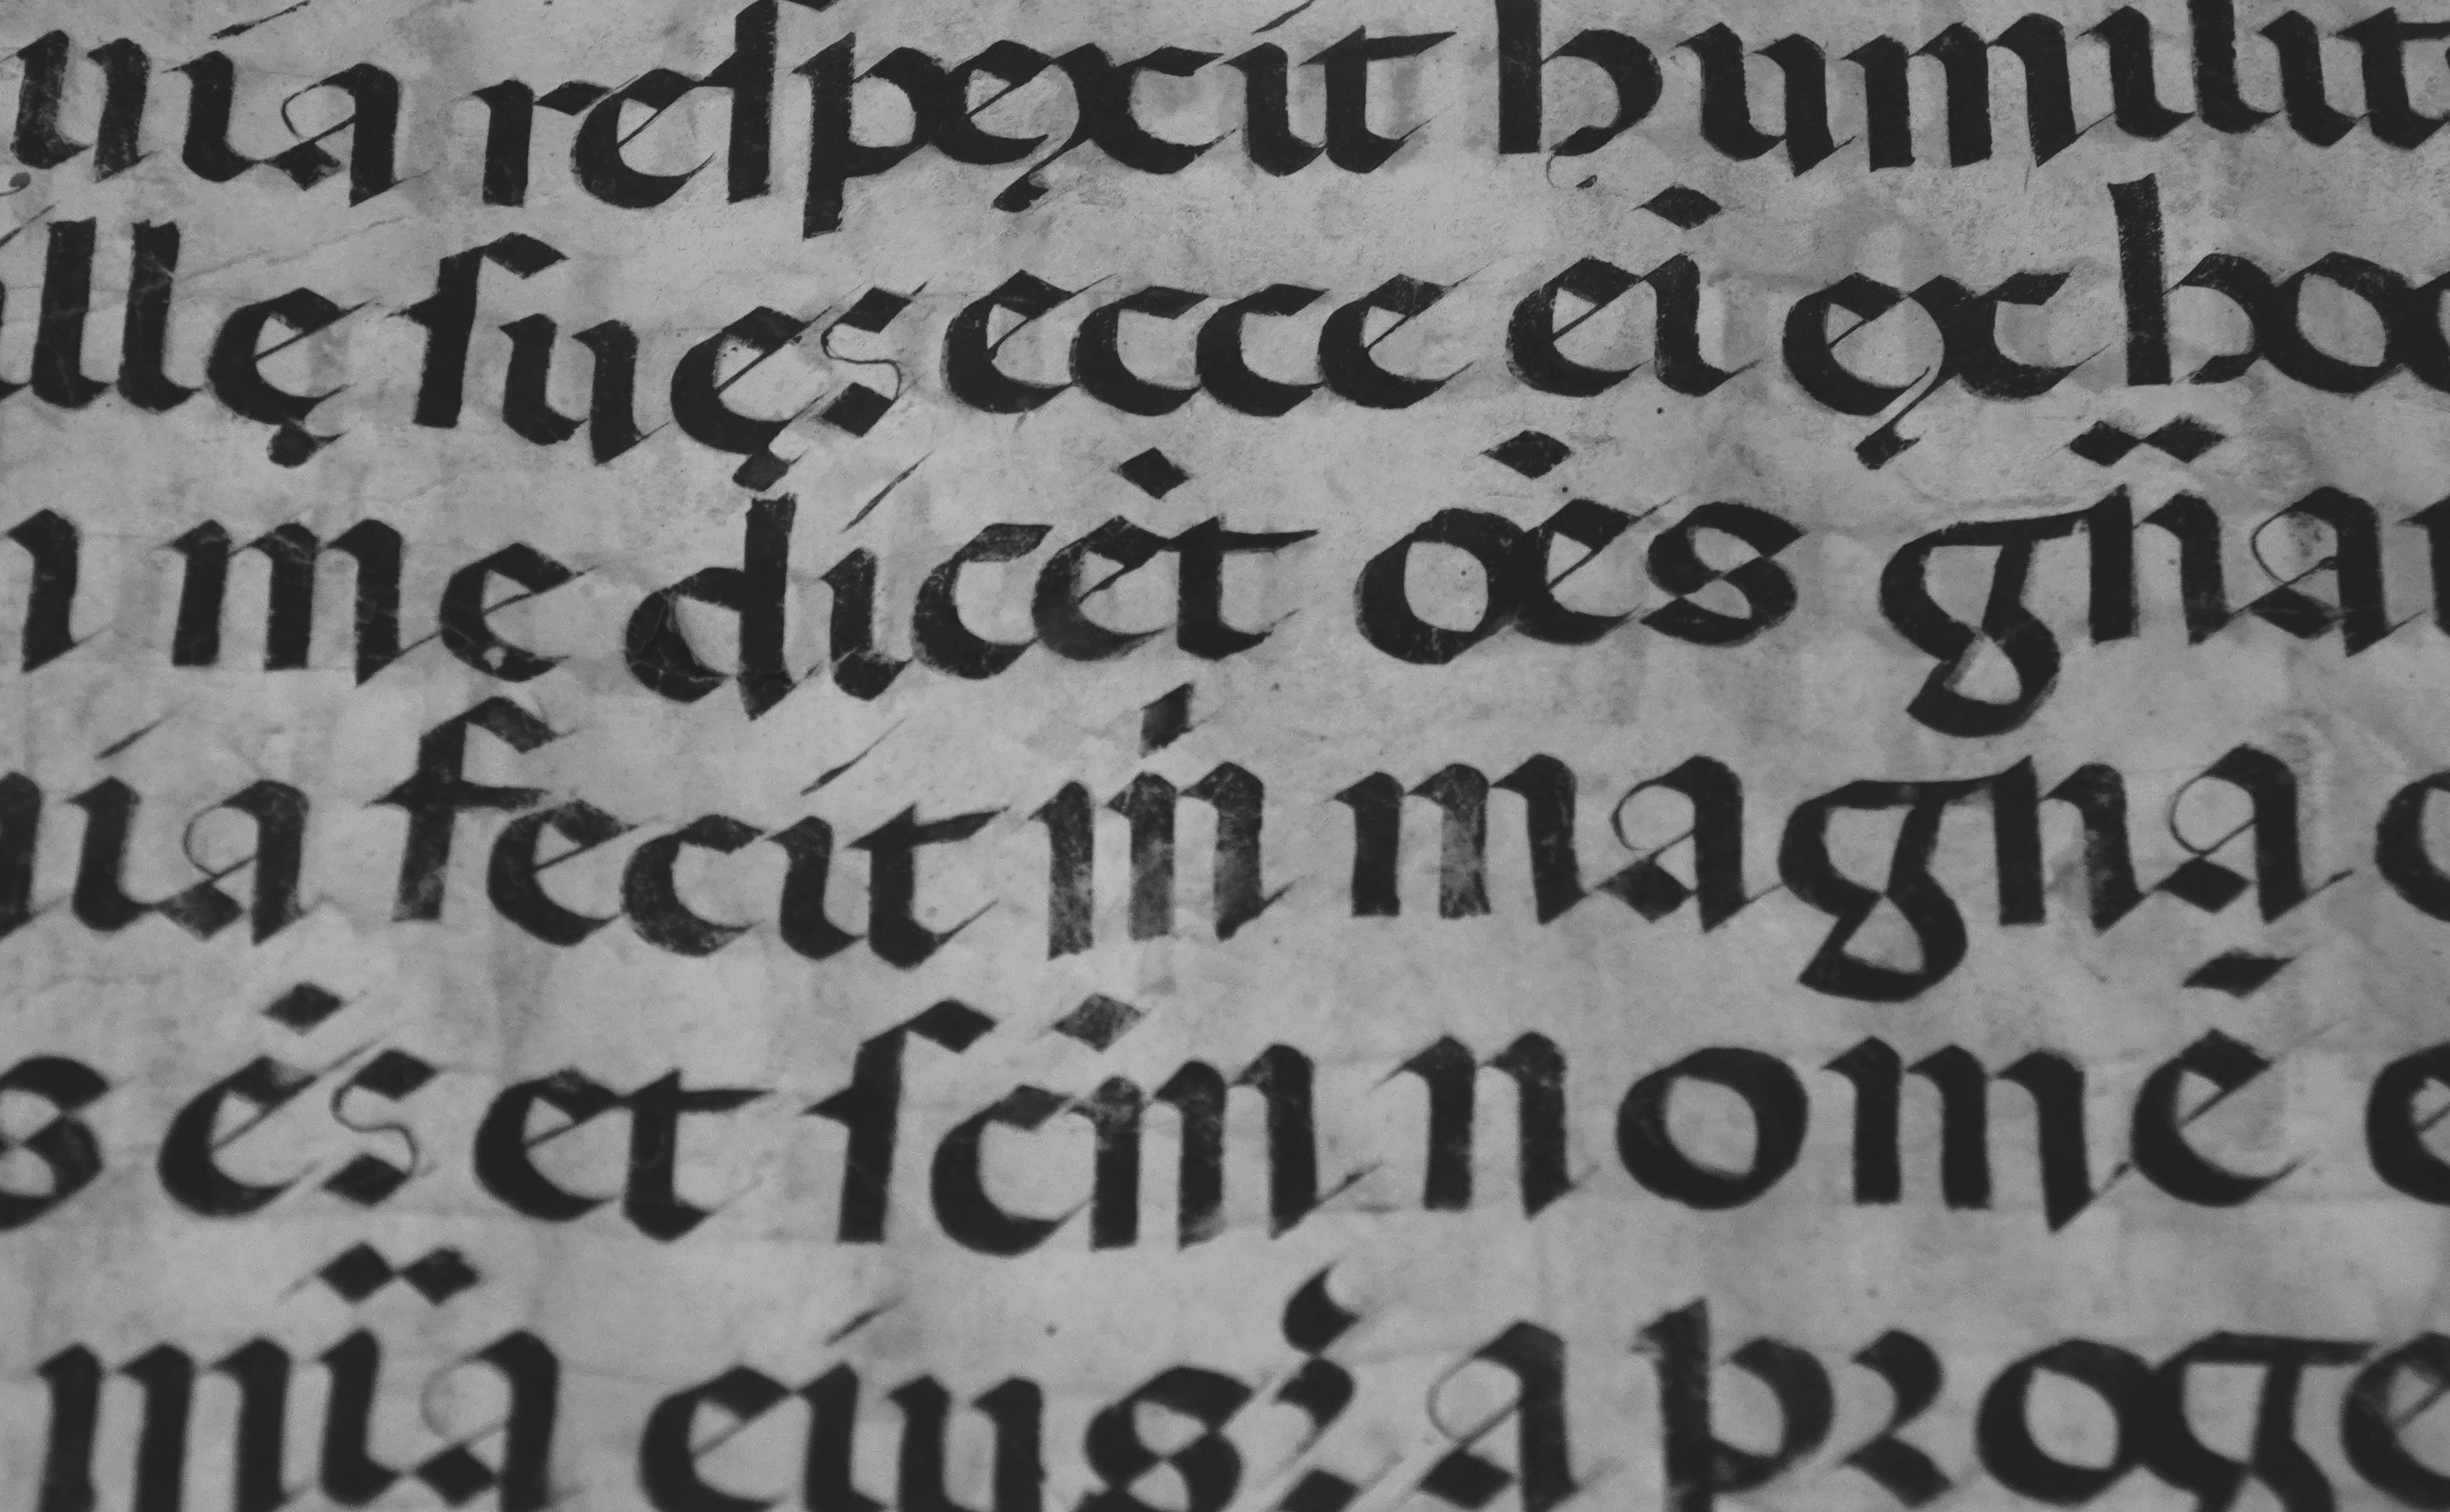 uia respexit humilit
illę suęs ecce ei ex hoc
i me dicėt oės gn̈a
uia fecit m̍ magna
s ės et scm̈ nomē e
mïa eius a proge